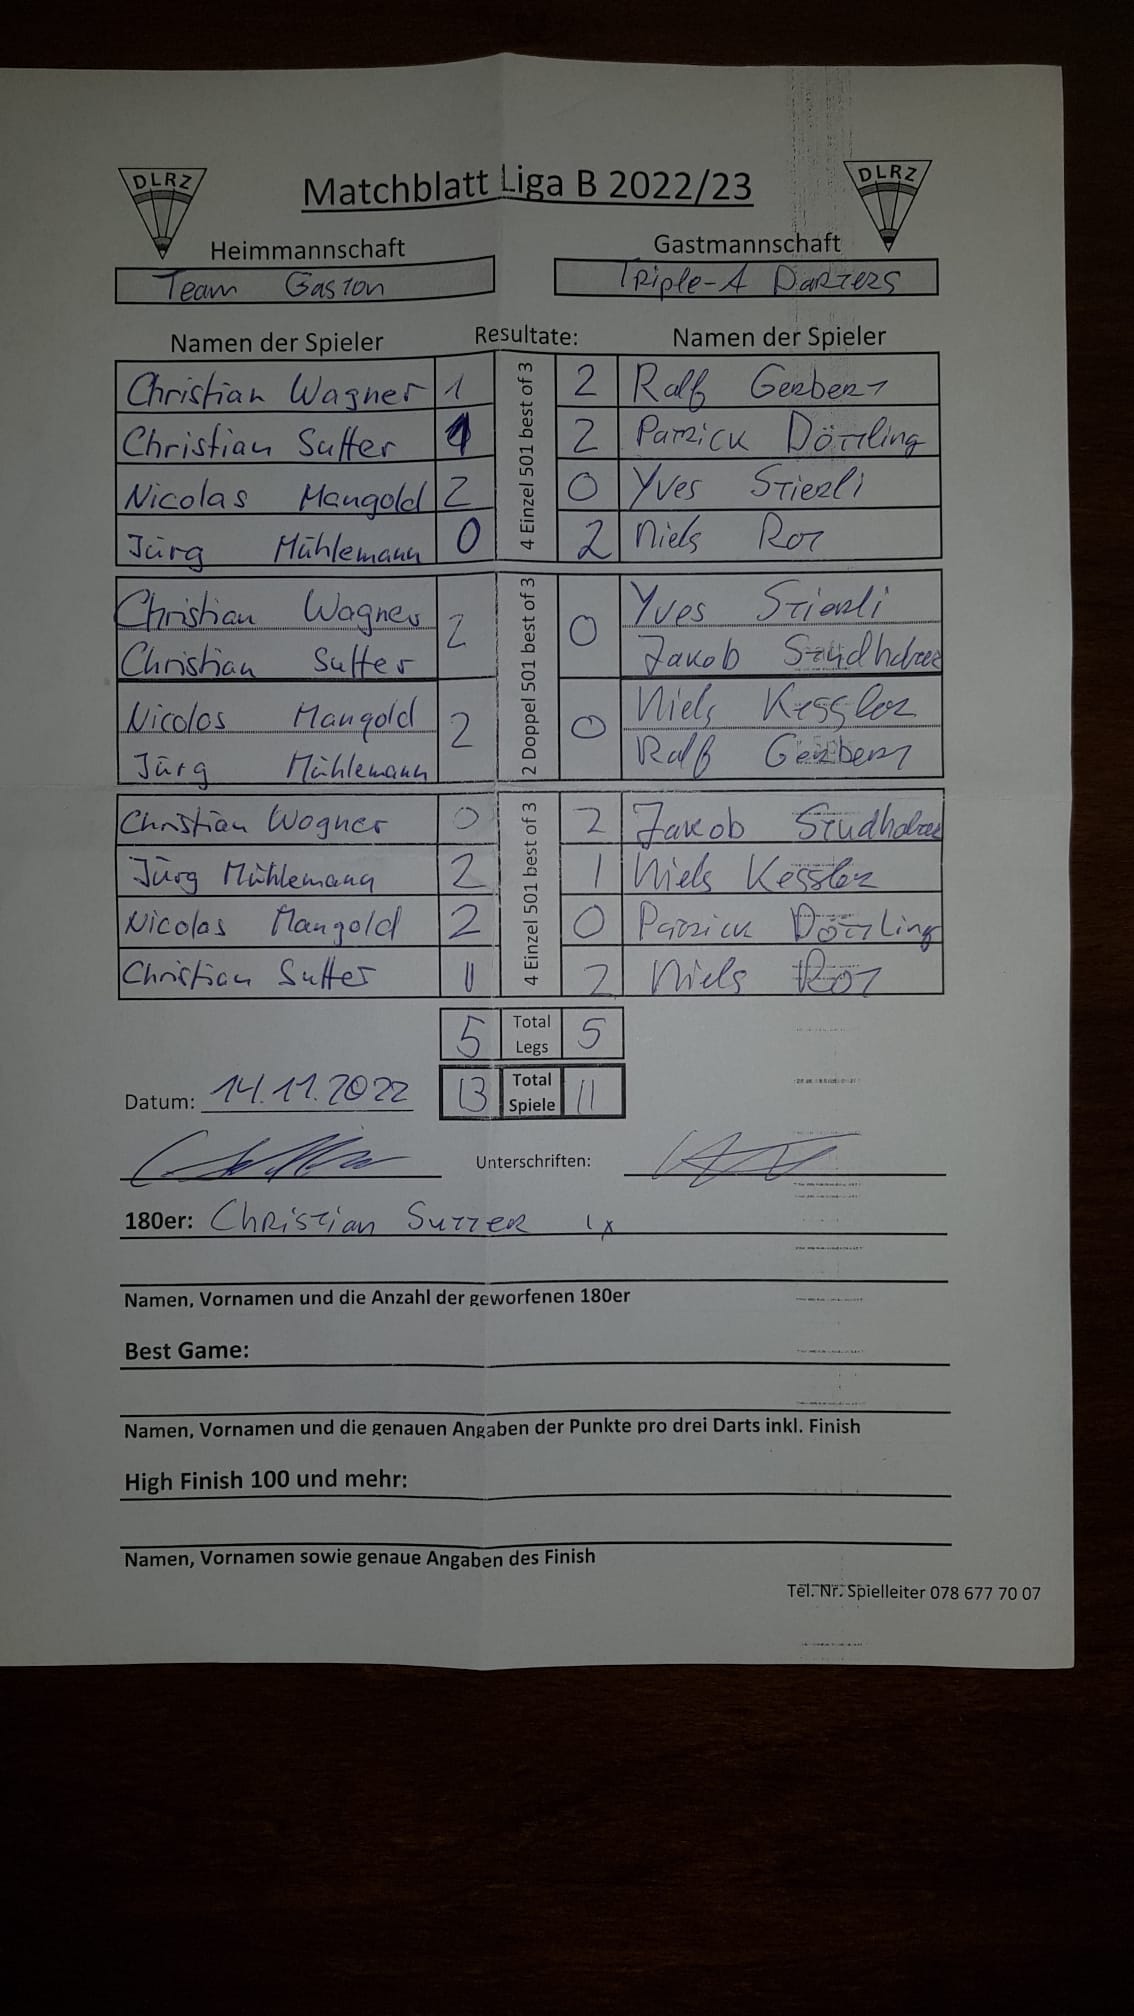 DLRZ Matchblatt Liga B 2022/23 DLRZ
Heimmannschaft Gastmannschaft
Team Gaston Triple-A Darters
Namen der Spieler Resultate: Namen der Spieler
4 Einzel 501 best of 3
Christian Wagner 1 2 Ralf Gerber
Christian Sutter 1 2 Patrick Döttling
Nicolas Mangold 2 0 Yves Stierli
Jürg Mühlemann 0 2 Niels Rot
2 Doppel 501 best of 3
Christian Wagner Yves Stierli
2 0
Christian Sutter Jakob
Nicolas Mangold Niels Kessler
2 0
Jürg Mühlemann Ralf Gerber
4 Einzel 501 best of 3
Christian Wagner 0 2 Jakob
Jürg Mühlemann 2 1 Niels Kessler
Nicolas Mangold 2 0 Patrick Döttling
Christian Sutter 1 2 Niels Rot
5 Total Legs 5
Datum: 14.11.2022 13 Total Spiele 11
Unterschriften:
180er: Christian Sutter 1x
Namen, Vornamen und die Anzahl der geworfenen 180er
Best Game:
Namen, Vornamen und die genauen Angaben der Punkte pro drei Darts inkl. Finish
High Finish 100 und mehr:
Namen, Vornamen sowie genaue Angaben des Finish
Tel. Nr. Spielleiter 078 677 70 07